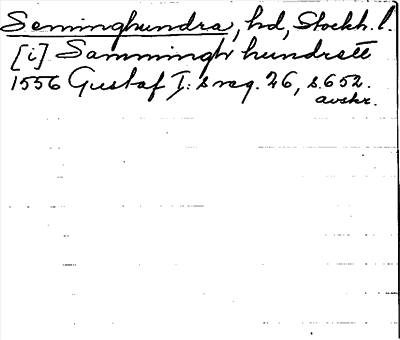 Seminghundra, hd, Stockh. l.
[i] Sammingh hundrett
1556 Gustaf I:s reg. 26, s. 652.
avskr.